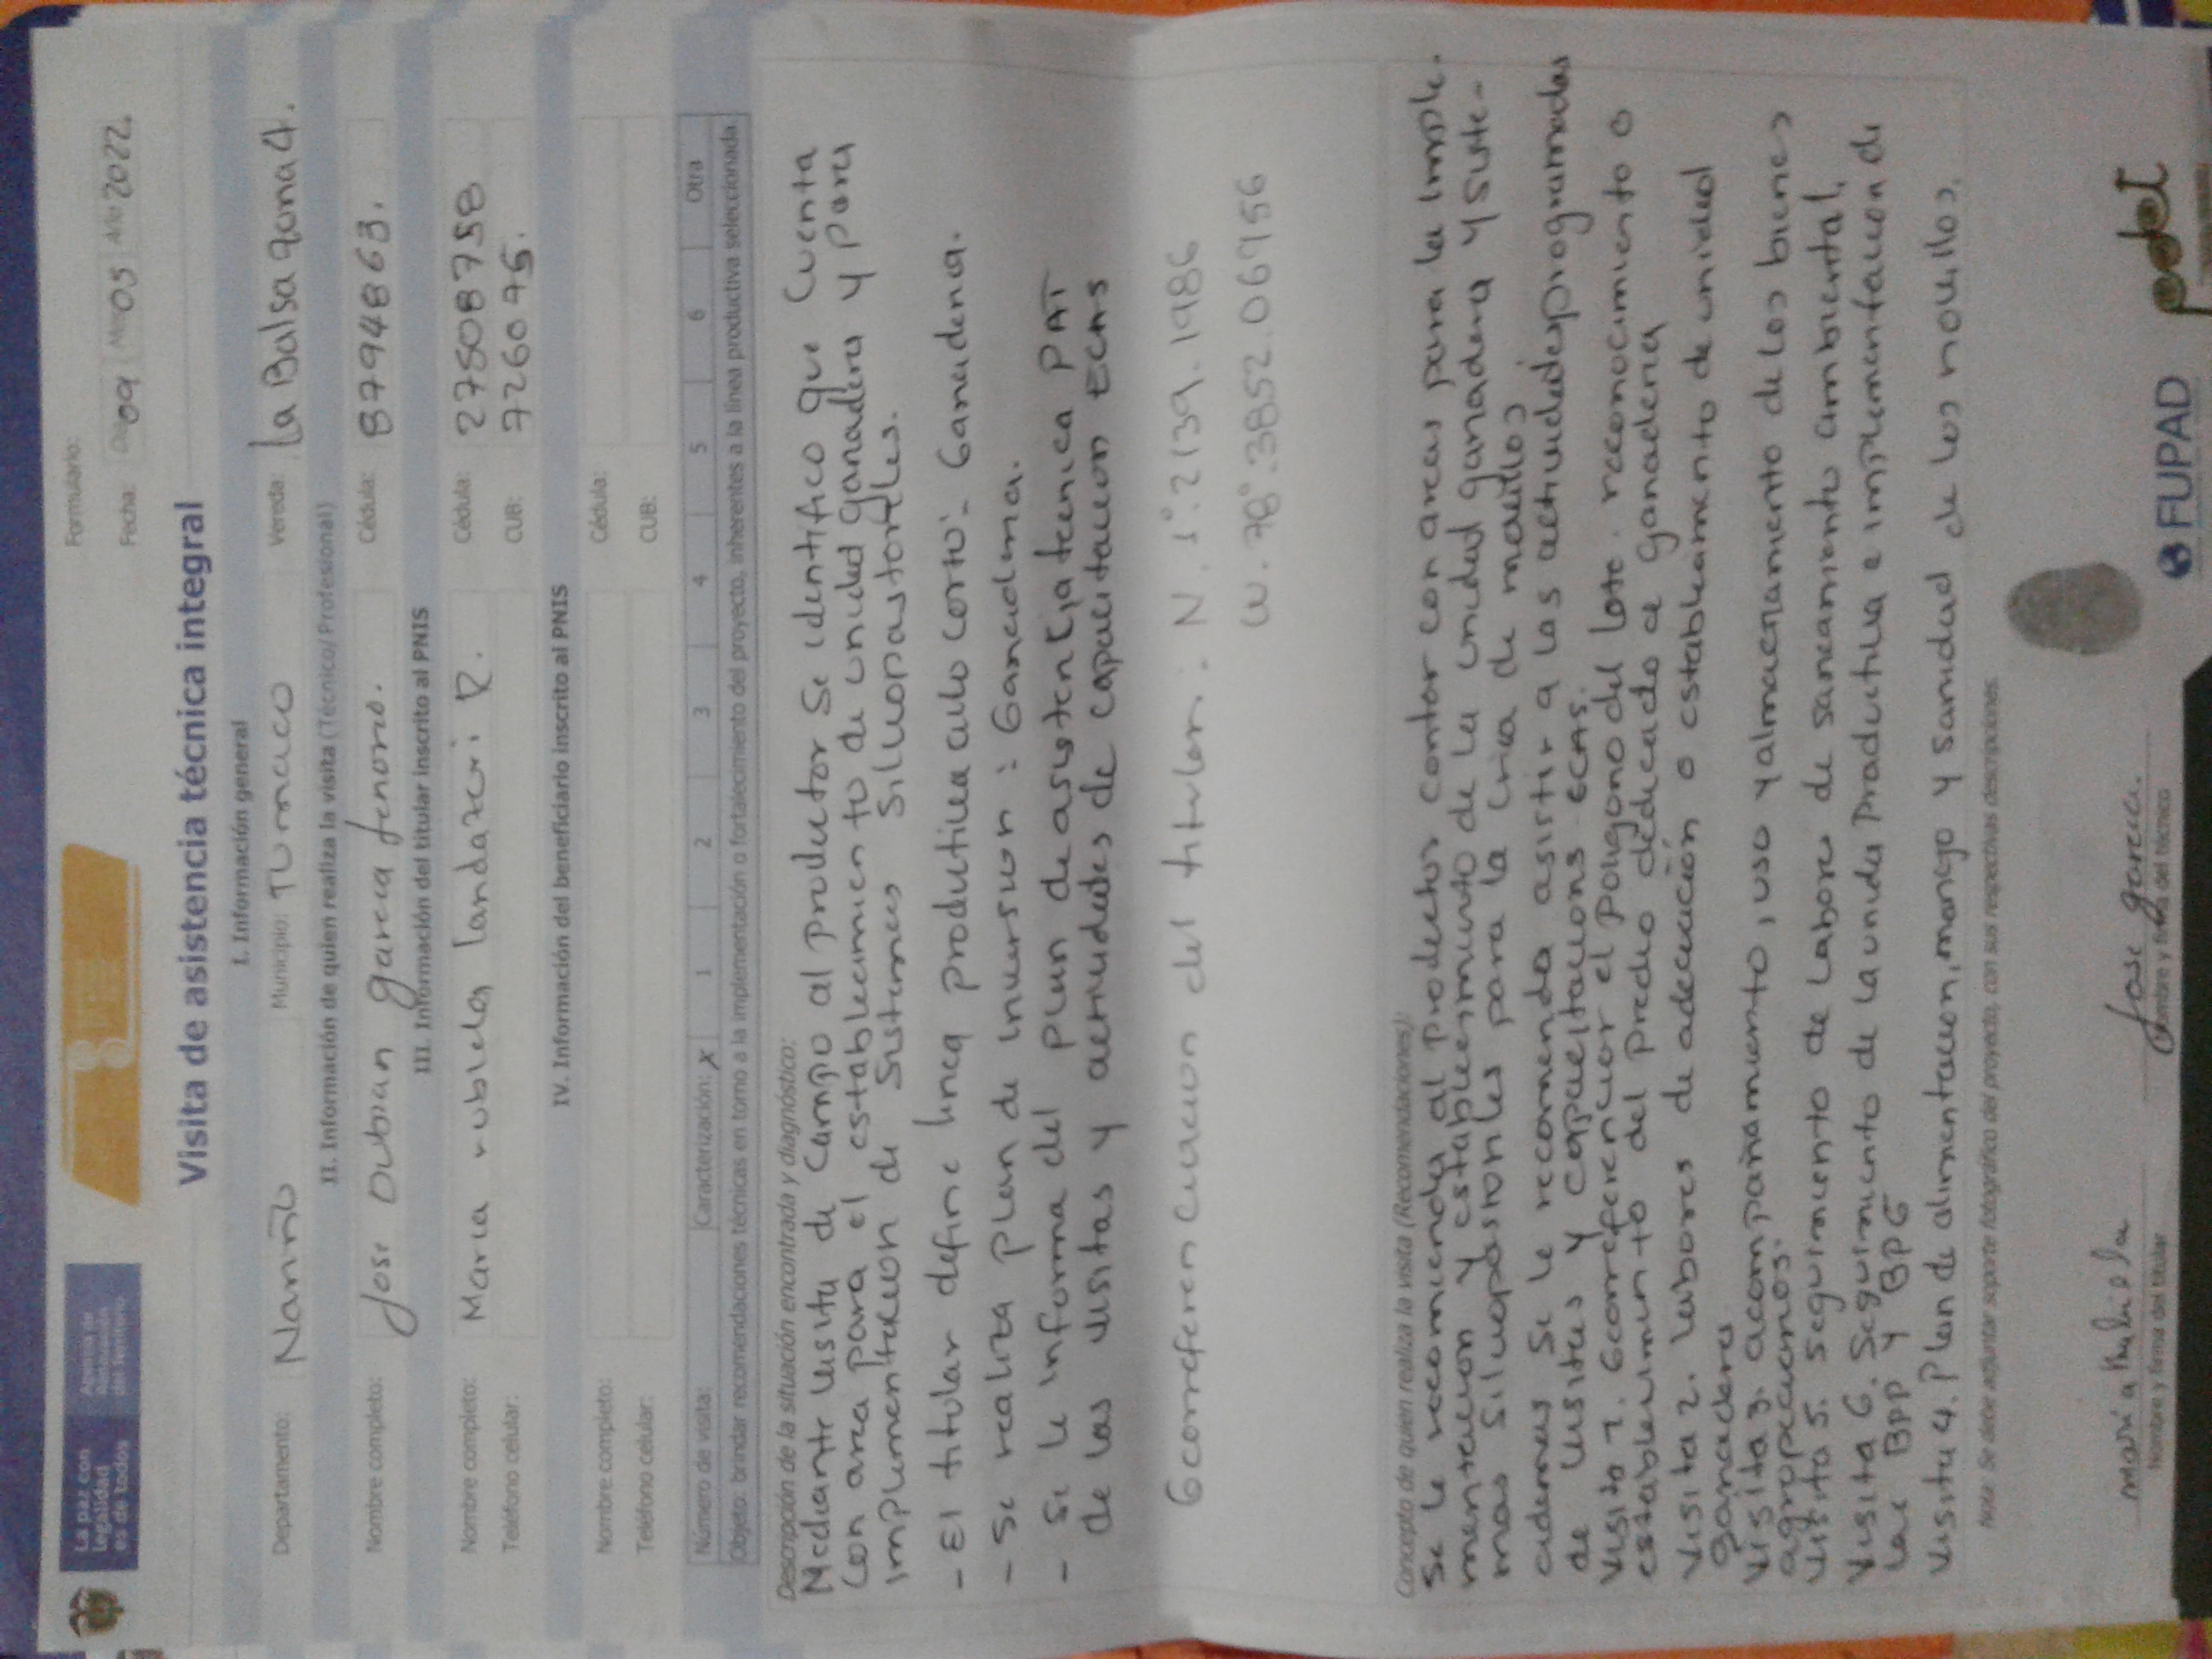 La paz con
legalidad
es de todos
Agencia de
Renovación
del Territorio
Formulario:
Fecha: Día 09 Mes 05 Año 2022.
Visita de asistencia técnica integral
I. Información general
Departamento: Nariño Municipio: Tumaco Vereda: La Balsa zona 4.
II. Información de quien realiza la visita (Técnico/ Profesional)
Nombre completo: Jose Dubian garcia tenorio. Cédula: 87948863.
III. Información del titular inscrito al PNIS
Nombre completo: Maria rubiela landazuri R. Cédula: 27508758
Teléfono celular: CUB: 726075.
IV. Información del beneficiario inscrito al PNIS
Nombre completo: Cédula:
Teléfono celular: CUB:
Número de visita: Caracterización: X 1 2 3 4 5 6 Otra
Objeto: brindar recomendaciones técnicas en torno a la implementación o fortalecimiento del proyecto, inherentes a la línea productiva seleccionada
Descripción de la situación encontrada y diagnóstico:
Mediante visita de campo al productor se identifico que cuenta
con area para el establecimiento de unidad ganadera y para
implementacion de sistemas silvopastoriles.
- El titular define linea productiva ciclo corto - Ganaderia.
- Se realiza plan de inversion : Ganaderia.
- Se le informa del plan de asistencia tecnica PAT
de las visitas y actividades de capacitacion ECAS
Georreferenciacion del titular: N. 1°.2139.1986
W. 78°.3852.067956
Concepto de quien realiza la visita (Recomendaciones):
Se le recomienda al productor contar con areas para la imple-
mentacion y establecimiento de la unidad ganadera y siste-
mas silvopastoriles para la cria de novillos
ademas se le recomienda asistir a las actividades programadas
de visitas y capacitacions ECAS.
Visita 1. Georreferenciar el poligono del lote. reconocimiento o
establecimiento del predio dedicado a ganaderia
Visita 2. labores de adecuación o establecimiento de unidad
ganadera
Visita 3. acompañamiento, uso y almacenamiento de los bienes
agropecuarios.
Visita 5. seguimiento de labores de saneamiento ambiental.
Visita 6. Seguimiento de la unidad productiva e implementacion de
las BPP y BPG
Visita 4. Plan de alimentacion, manejo y sanidad de los novillos.
Nota: Se debe adjuntar soporte fotográfico del proyecto, con sus respectivas descripciones.
maria Rubiela
Nombre y firma del titular
Jose garcia.
Nombre y firma del técnico
FUPAD
pdet